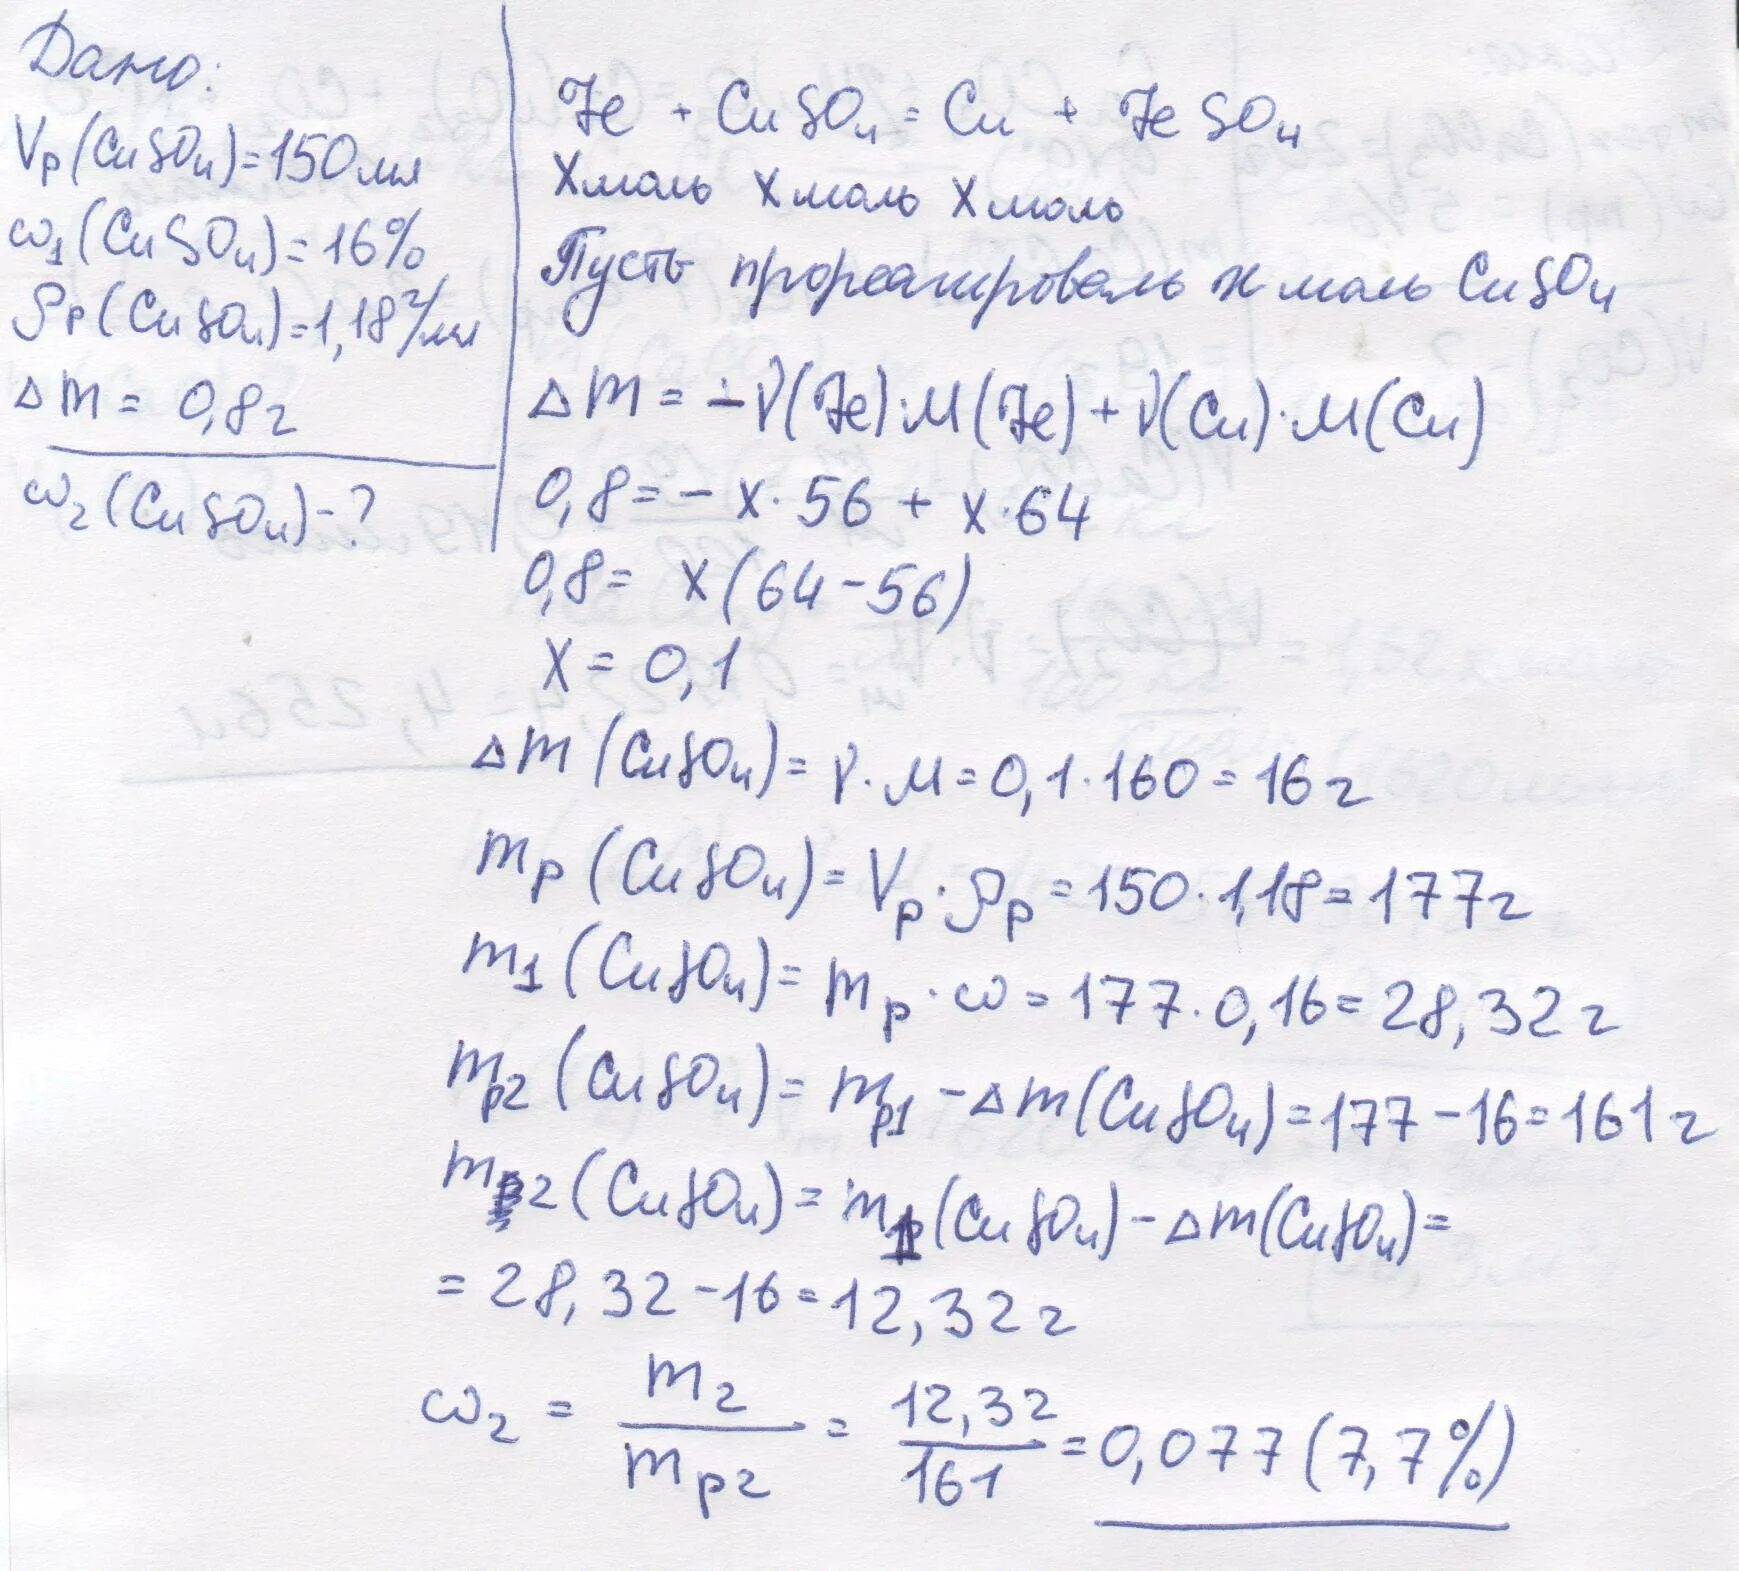 Дано:
Vр(CuSO₄)=150мл
ω₁(CuSO₄)=16%
ρр(CuSO₄)=1,18г/мл
Δm = 0,8г
ω₂(CuSO₄)-?
Fe + CuSO₄ = Cu + FeSO₄
Xмоль Xмоль Xмоль
Пусть прореагироваль x моль CuSO₄
Δm = -ν(Fe)·M(Fe)+ν(Cu)·M(Cu)
0,8=-x·56+x·64
0,8= x(64-56)
X = 0,1
Δm(CuSO₄)=ν·M=0,1·160=16г
mр(CuSO₄)=Vр·ρр=150·1,18=177г
m₁(CuSO₄)=mр·ω=177·0,16=28,32г
mр₂(CuSO₄)=mр₁-Δm(CuSO₄)=177-16=161г
m₂(CuSO₄)=m₁(CuSO₄)-Δm(CuSO₄)=
=28,32-16=12,32г
ω₂ = m₂/mр₂ = 12,32/161 = 0,077(7,7%)